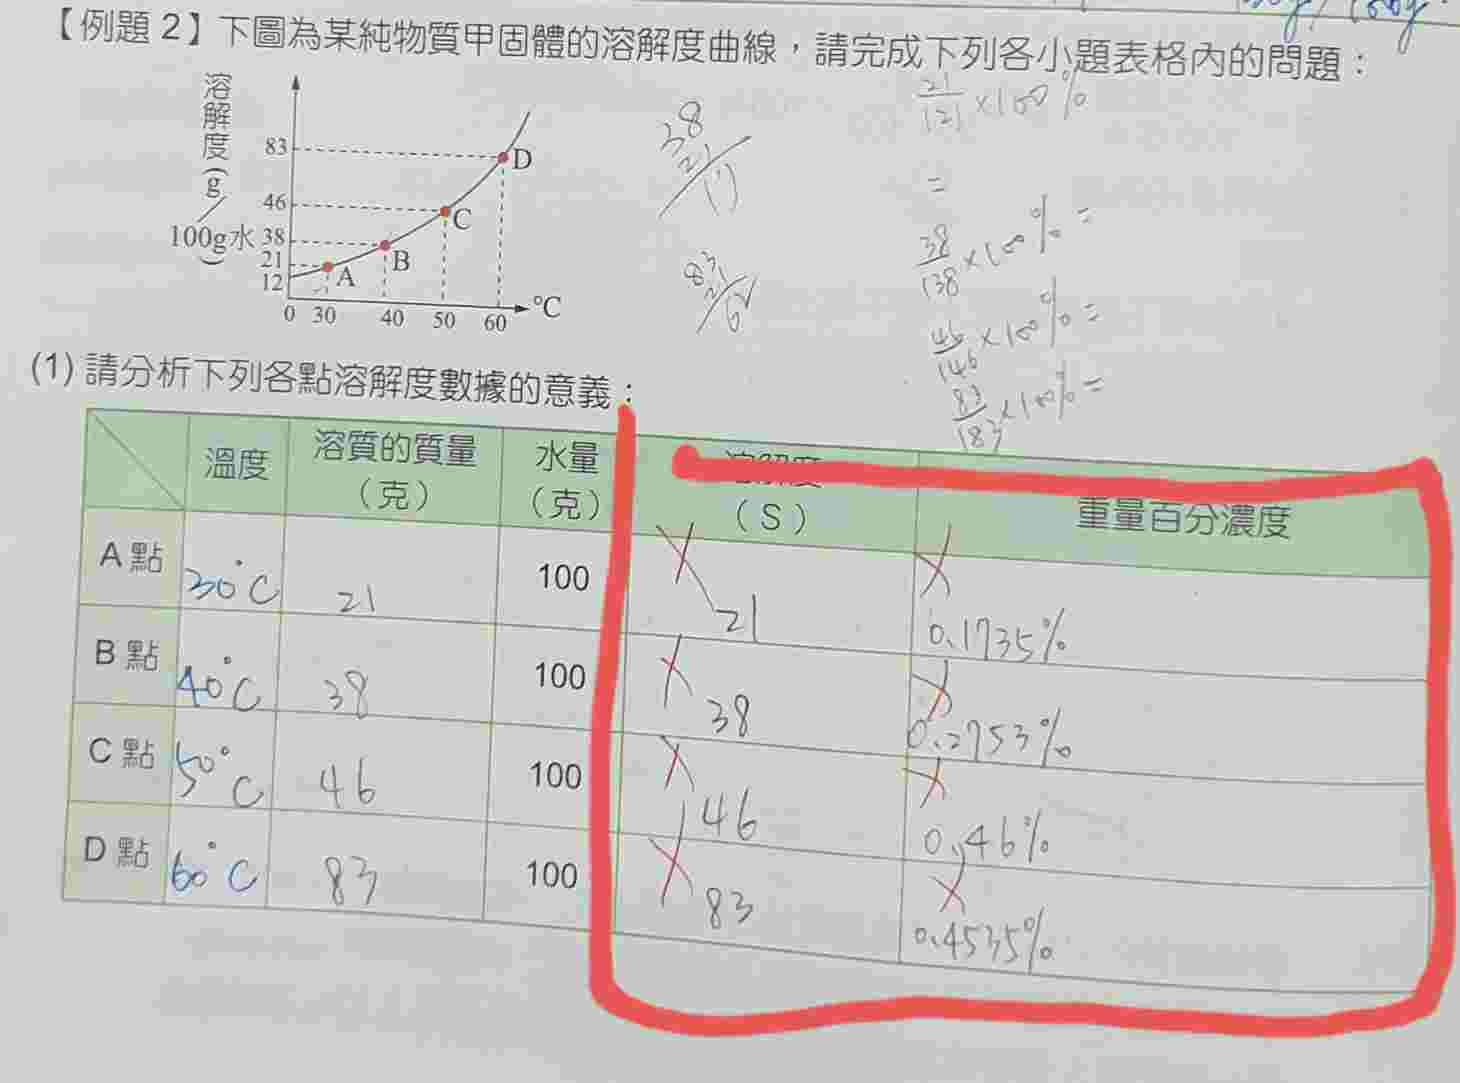 【例題 2】下圖為某純物質甲固體的溶解度曲線，請完成下列各小題表格內的問題：
溶解度(g/100g水)
83
46
38
21
12
A
B
C
D
0 30 40 50 60 ℃
38
21
17
83
21
62
21/121 ×100%
=
38/138 ×100% =
46/146 ×100% =
83/183 ×100% =
(1) 請分析下列各點溶解度數據的意義：
溫度 溶質的質量（克） 水量（克） 溶解度（S） 重量百分濃度
A 點 30°C 21 100 21 0.1735%
B 點 40°C 38 100 38 0.2753%
C 點 50°C 46 100 46 0.46%
D 點 60°C 83 100 83 0.4535%